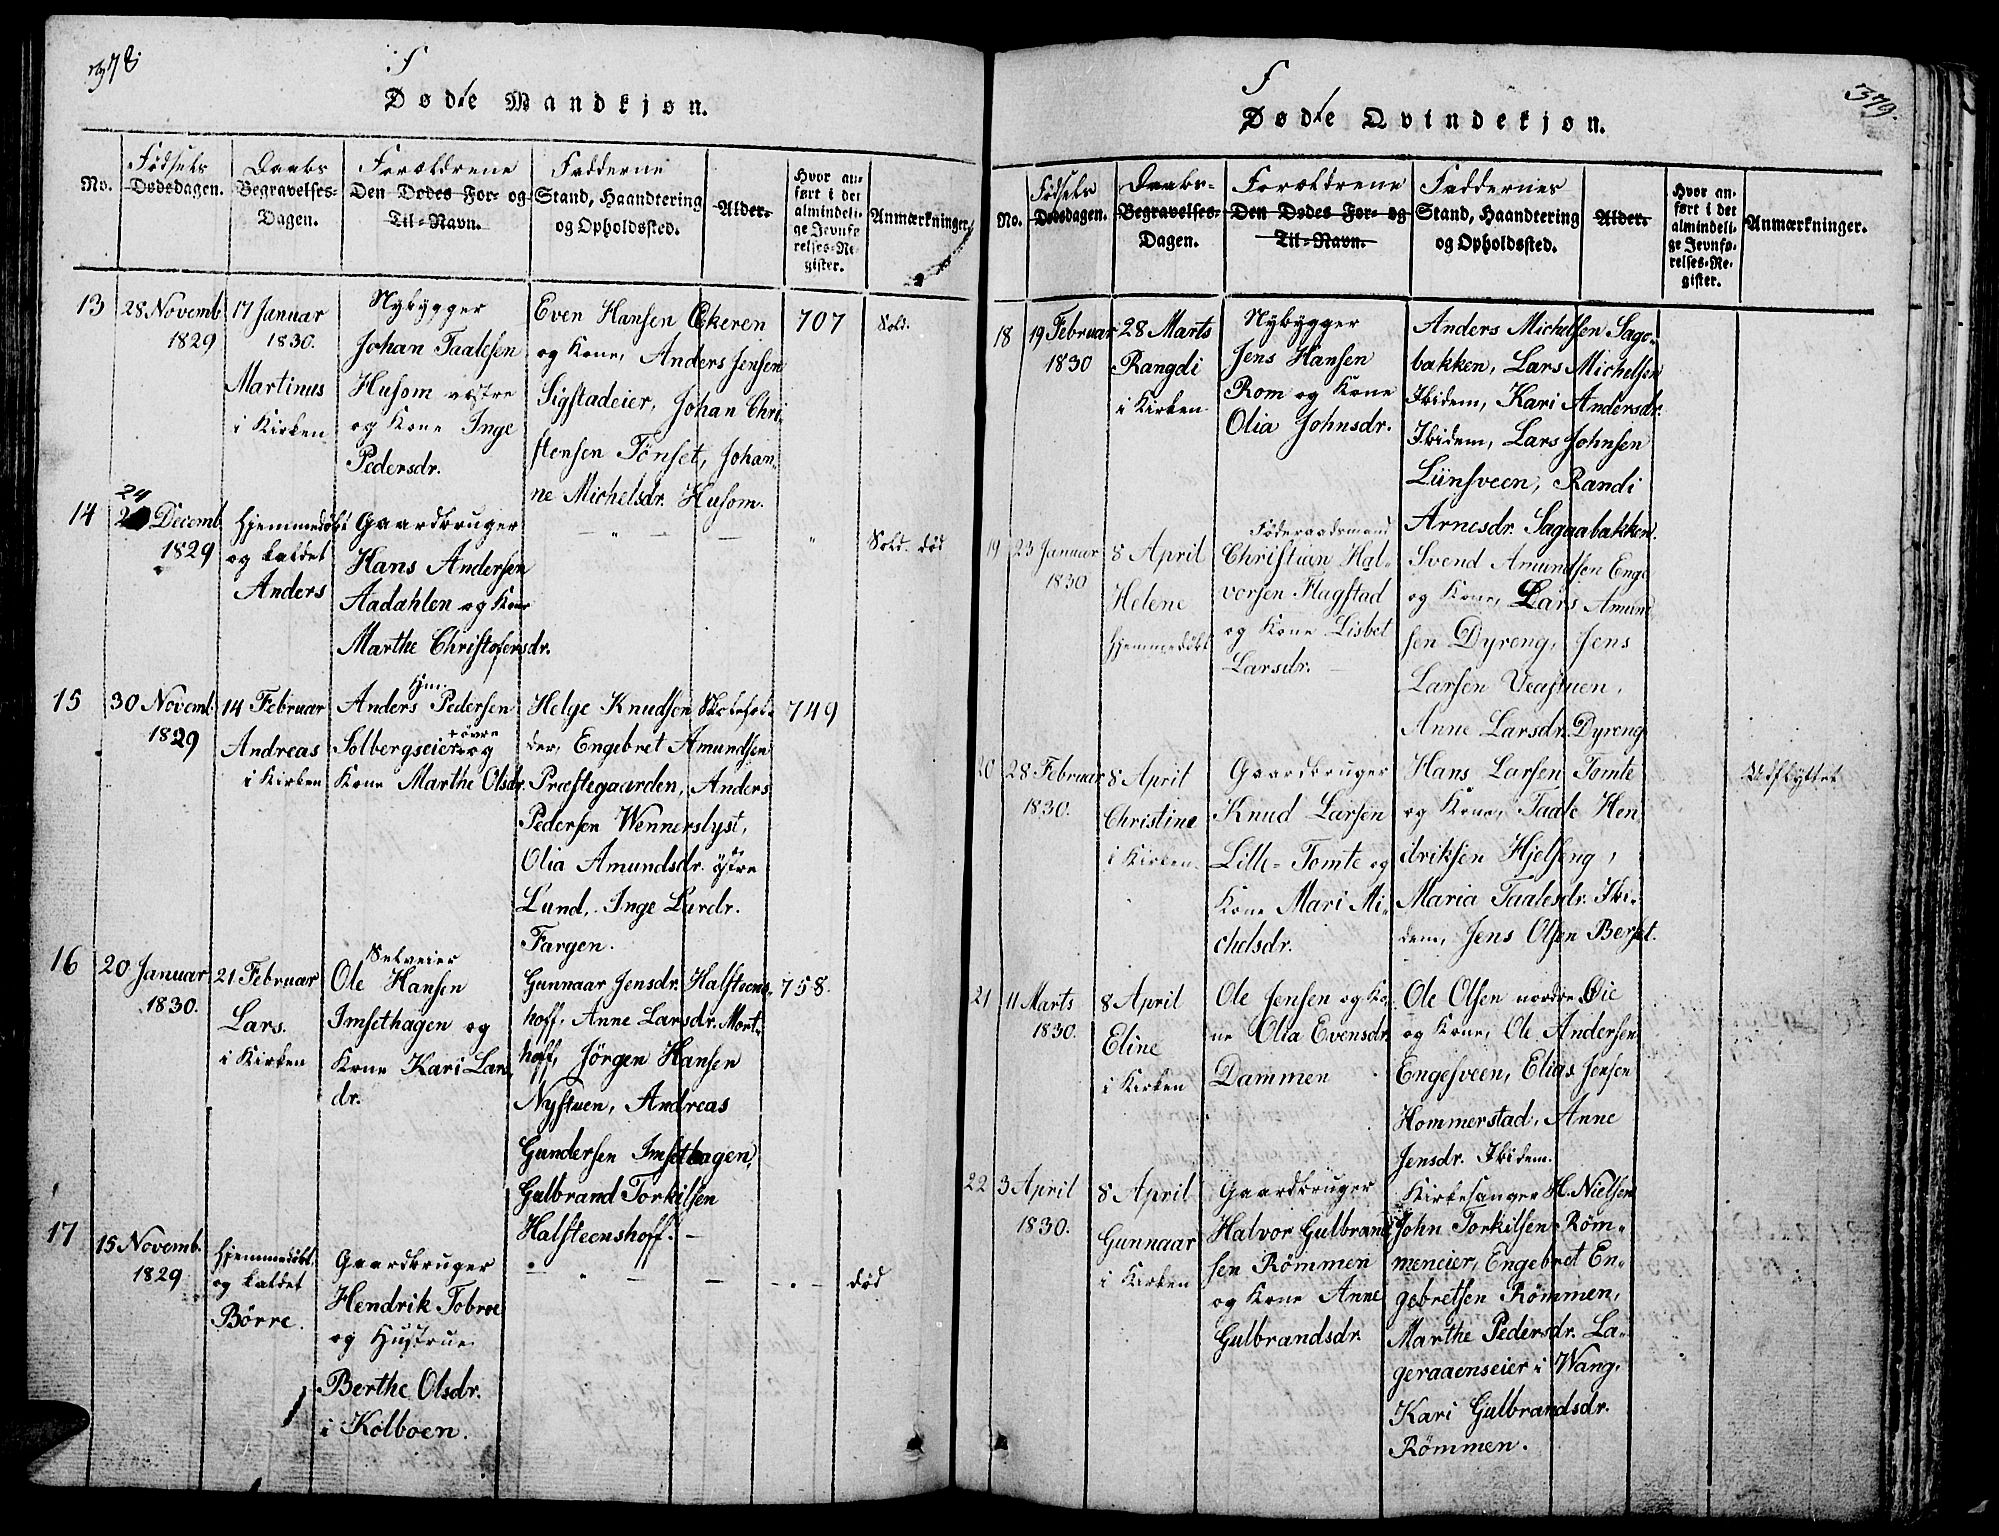 378.
Fød/te Mandkjøn.
No.
Fødsels
Dødsdagen.
Daabs
Begravelses-
Dagen.
Forældrene
Den Dødes For- og
Til-Navn.
Fadderne
Stand, Haandtering
og Opholdssted.
Alder.
Hvor an-
ført i det
almindeli-
ge Jevnfø-
relses-Re-
gister.
Anmærkninger.
13
28 Novemb.
1829
17 Januar
1830.
Martinus
i Kirken
Nybygger
Johan Taalesen
Husom vestre
og Kone Inge
Pedersdr.
Even Hansen Ekeren
og Kone, Anders Jensen
Sigstadeier, Johan Chri-
stensen Tönset, Johan-
ne Michelsdr. Husom.
707
Sold.
14
24
Decemb.
1829
Hjemmedøbt
og kaldet
Anders
Gaardbruger
Hans Andersen
Aadahlen og Kone
Marthe Christofersdr.
— " — —
"
Sold. död
15
30 Novemb.
1829
14 Februar
Andreas
i Kirken
Hm.
Anders Pedersen
+ övre
Solbergseier og
Kone Marthe Olsdr.
Helge Knudsen Skolehol-
der, Engebret Amundsen
Præstegaarden, Anders
Pedersen Wennerslyst,
Olia Amundsdr. östre
Lund, Inge Lardr.
Fargen.
749
16
20 Januar
1830.
21 Februar
Lars.
i Kirken
Selveier
Ole Hansen
Imsethagen og
Kone Kari Lars
dr.
Gunnaar Jensdr. Halsteens-
hoff, Anne Larsdr. Mort-
hoff, Jörgen Hansen
Nystuen, Andreas
Gundersen Imsethagen,
Gulbrand Torkilsen
Halsteenshoff. —
758.
17
15 Novemb.
1829
Hjemmedöbt
og kaldet
Börre.
Gaardbruger
Hendrik Tobroe
og Hustrue
Berthe Olsdr.
i Kolboen.
— " — — . —
död
379.
Fød/te Qvindekjøn.
No.
Fødsels
Dødsdagen.
Daabs-
Begravelses-
Dagen.
Forældrene
Den Dødes For- og
Til-Navn.
Faddernes
Stand, Haandtering
og Opholdssted.
Alder.
Hvor an-
ført i det
almindeli-
ge Jevnfø-
relses-Re-
gister.
Anmærkninger.
18
19 Februar
1830
28 Marts
Rangdi
i Kirken
Nybygger
Jens Hansen
Rom og Kone
Olia Johnsdr.
Anders Michelsen Sago-
bakken, Lars Michelsen
Ibidem, Kari Andersdr.
Ibidem, Lars Johnsen
Lünsveen, Randi
Arnesdr. Sagaabakken.
19
23 Januar
1830
8 April
Helene
Hjemmedöbt
Föderaadsmand
Christian Hal-
vorsen Flugstad
og Kone Lisbet
Larsdr.
Svend Amundsen Enge
og Kone, Lars Amund
sen Dyreng, Jens
Larsen Veastuen,
Anne Larsdr. Dyreng
20
28 Februar
1830.
8 April
Christine
i Kirken
Gaardbruger
Knud Larsen
Lille-Tomte og
Kone Mari Mi-
chelsdr.
Hans Larsen Tomte
og Kone, Taale Hen
driksen Hjelseng,
Maria Taalesdr. Ibi-
dem, Jens Olsen Berset.
Udflyttet
21
11 Marts
1830.
8 April
Eline
i Kirken
Ole Jensen og Ko-
ne Olia Evensdr.
Dammen
Ole Olsen nordre Öie
og Kone, Ole Andersen
Engesveen, Elias Jensen
Hommerstad, Anne
Jensdr. Ibidem.
22
3 April
1830.
8 April
Gunnaar
i Kirken
Gaardbruger
Halvor Gulbrand
sen Römmen
og Kone Anne
Gulbrandsdr.
Kirkesanger H. Nielsen
John Torkilsen Röm-
meneier, Engebret En-
gebretsen Römmen,
Marthe Pedersdr. La-
geraaenseier i Wang,
Kari Gulbrandsdr.
Römmen.